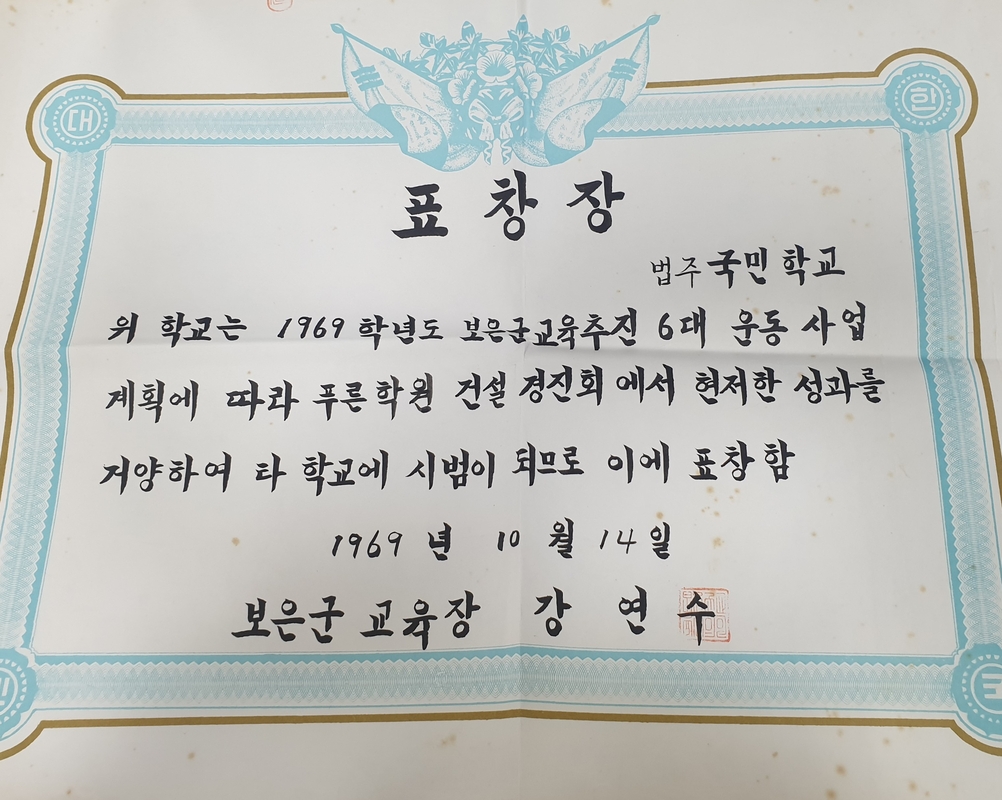 대 한
표창장
법주 국민학교
위 학교는 1969 학년도 보은군교육추진 6대 운동 사업
계획에 따라 푸른학원 건설 경진회에서 현저한 성과를
거양하여 타 학교에 시범이 되므로 이에 표창함
1969 년 10 월 14 일
보은군 교육장 강 연 수